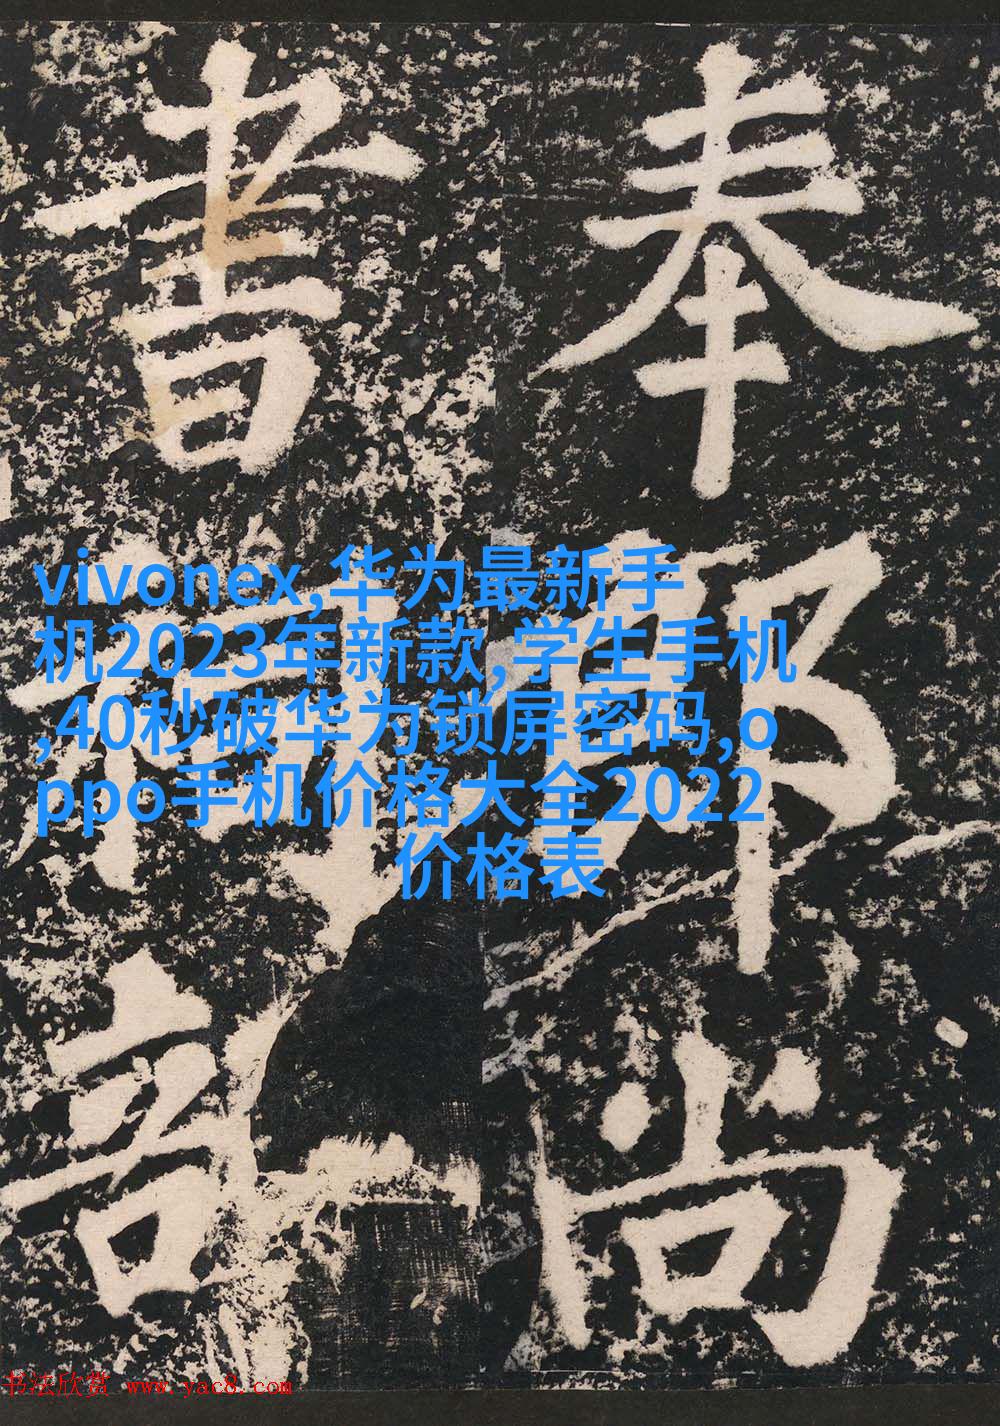 奉郎尚
書祠部
vivonex,华为最新手
机2023年新款,学生手机
,40秒破华为锁屏密码,o
ppo手机价格大全2022
价格表
书法欣赏 www.yac8.com